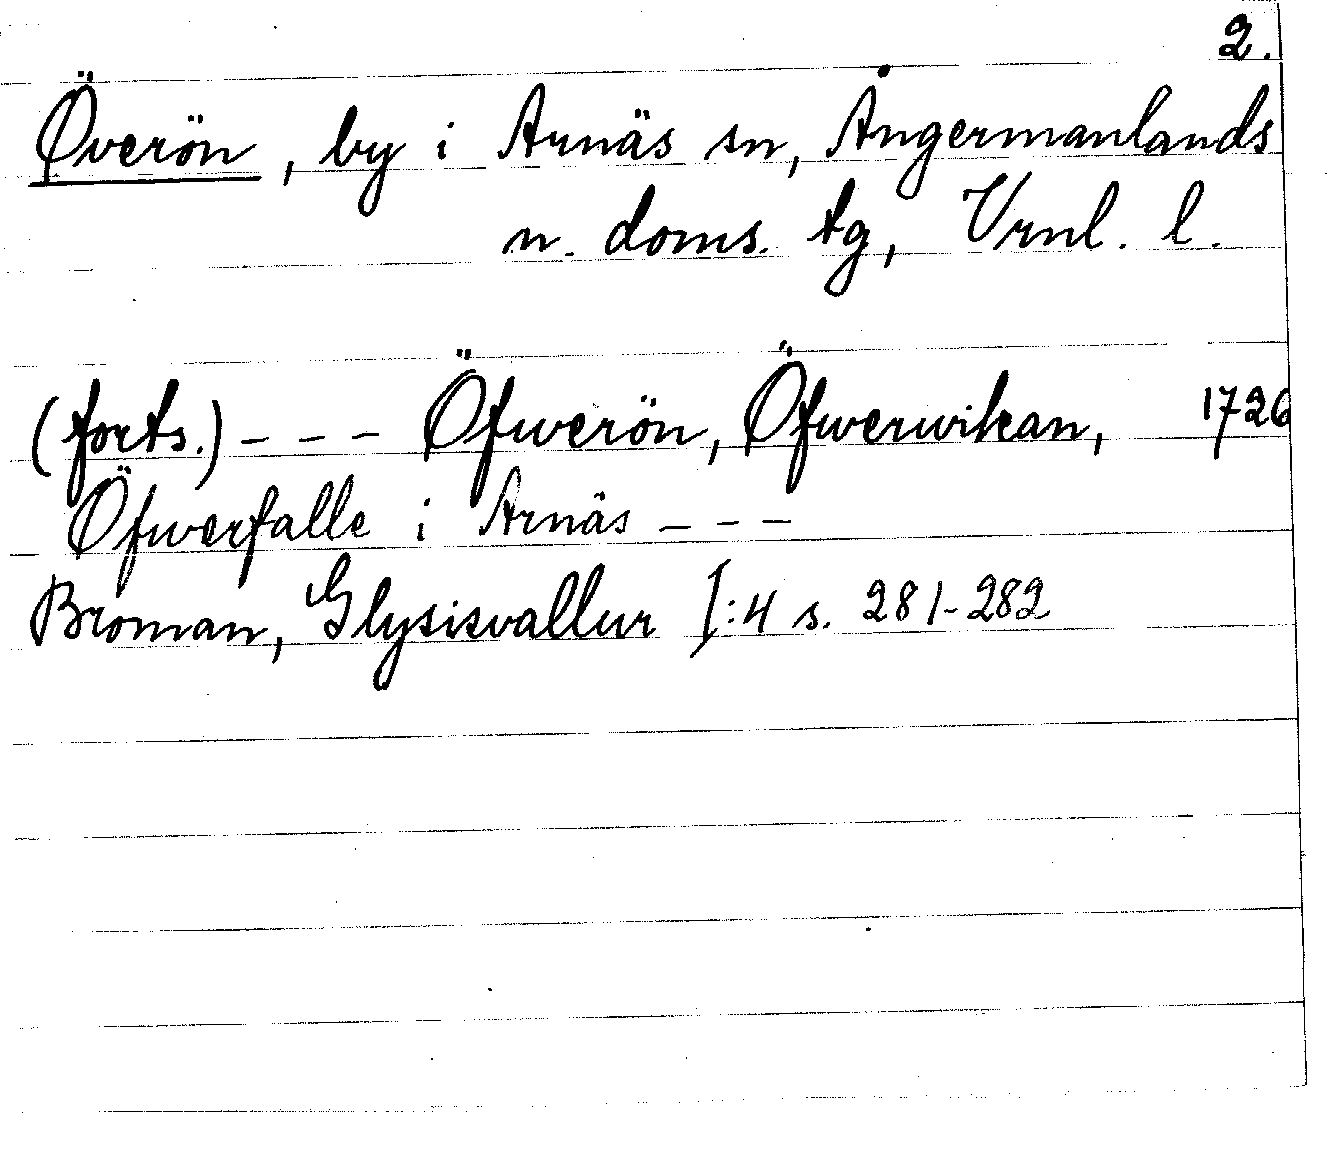 2.
Överön, by i Arnäs sn, Ångermanlands
n. doms. tg, Vrnl. l.
(forts.) - - - Öfwerön, Öfwerwikan, 1726
Öfwerfalle i Arnäs - - -
Broman, Glysisvallur I:4 s. 281-282